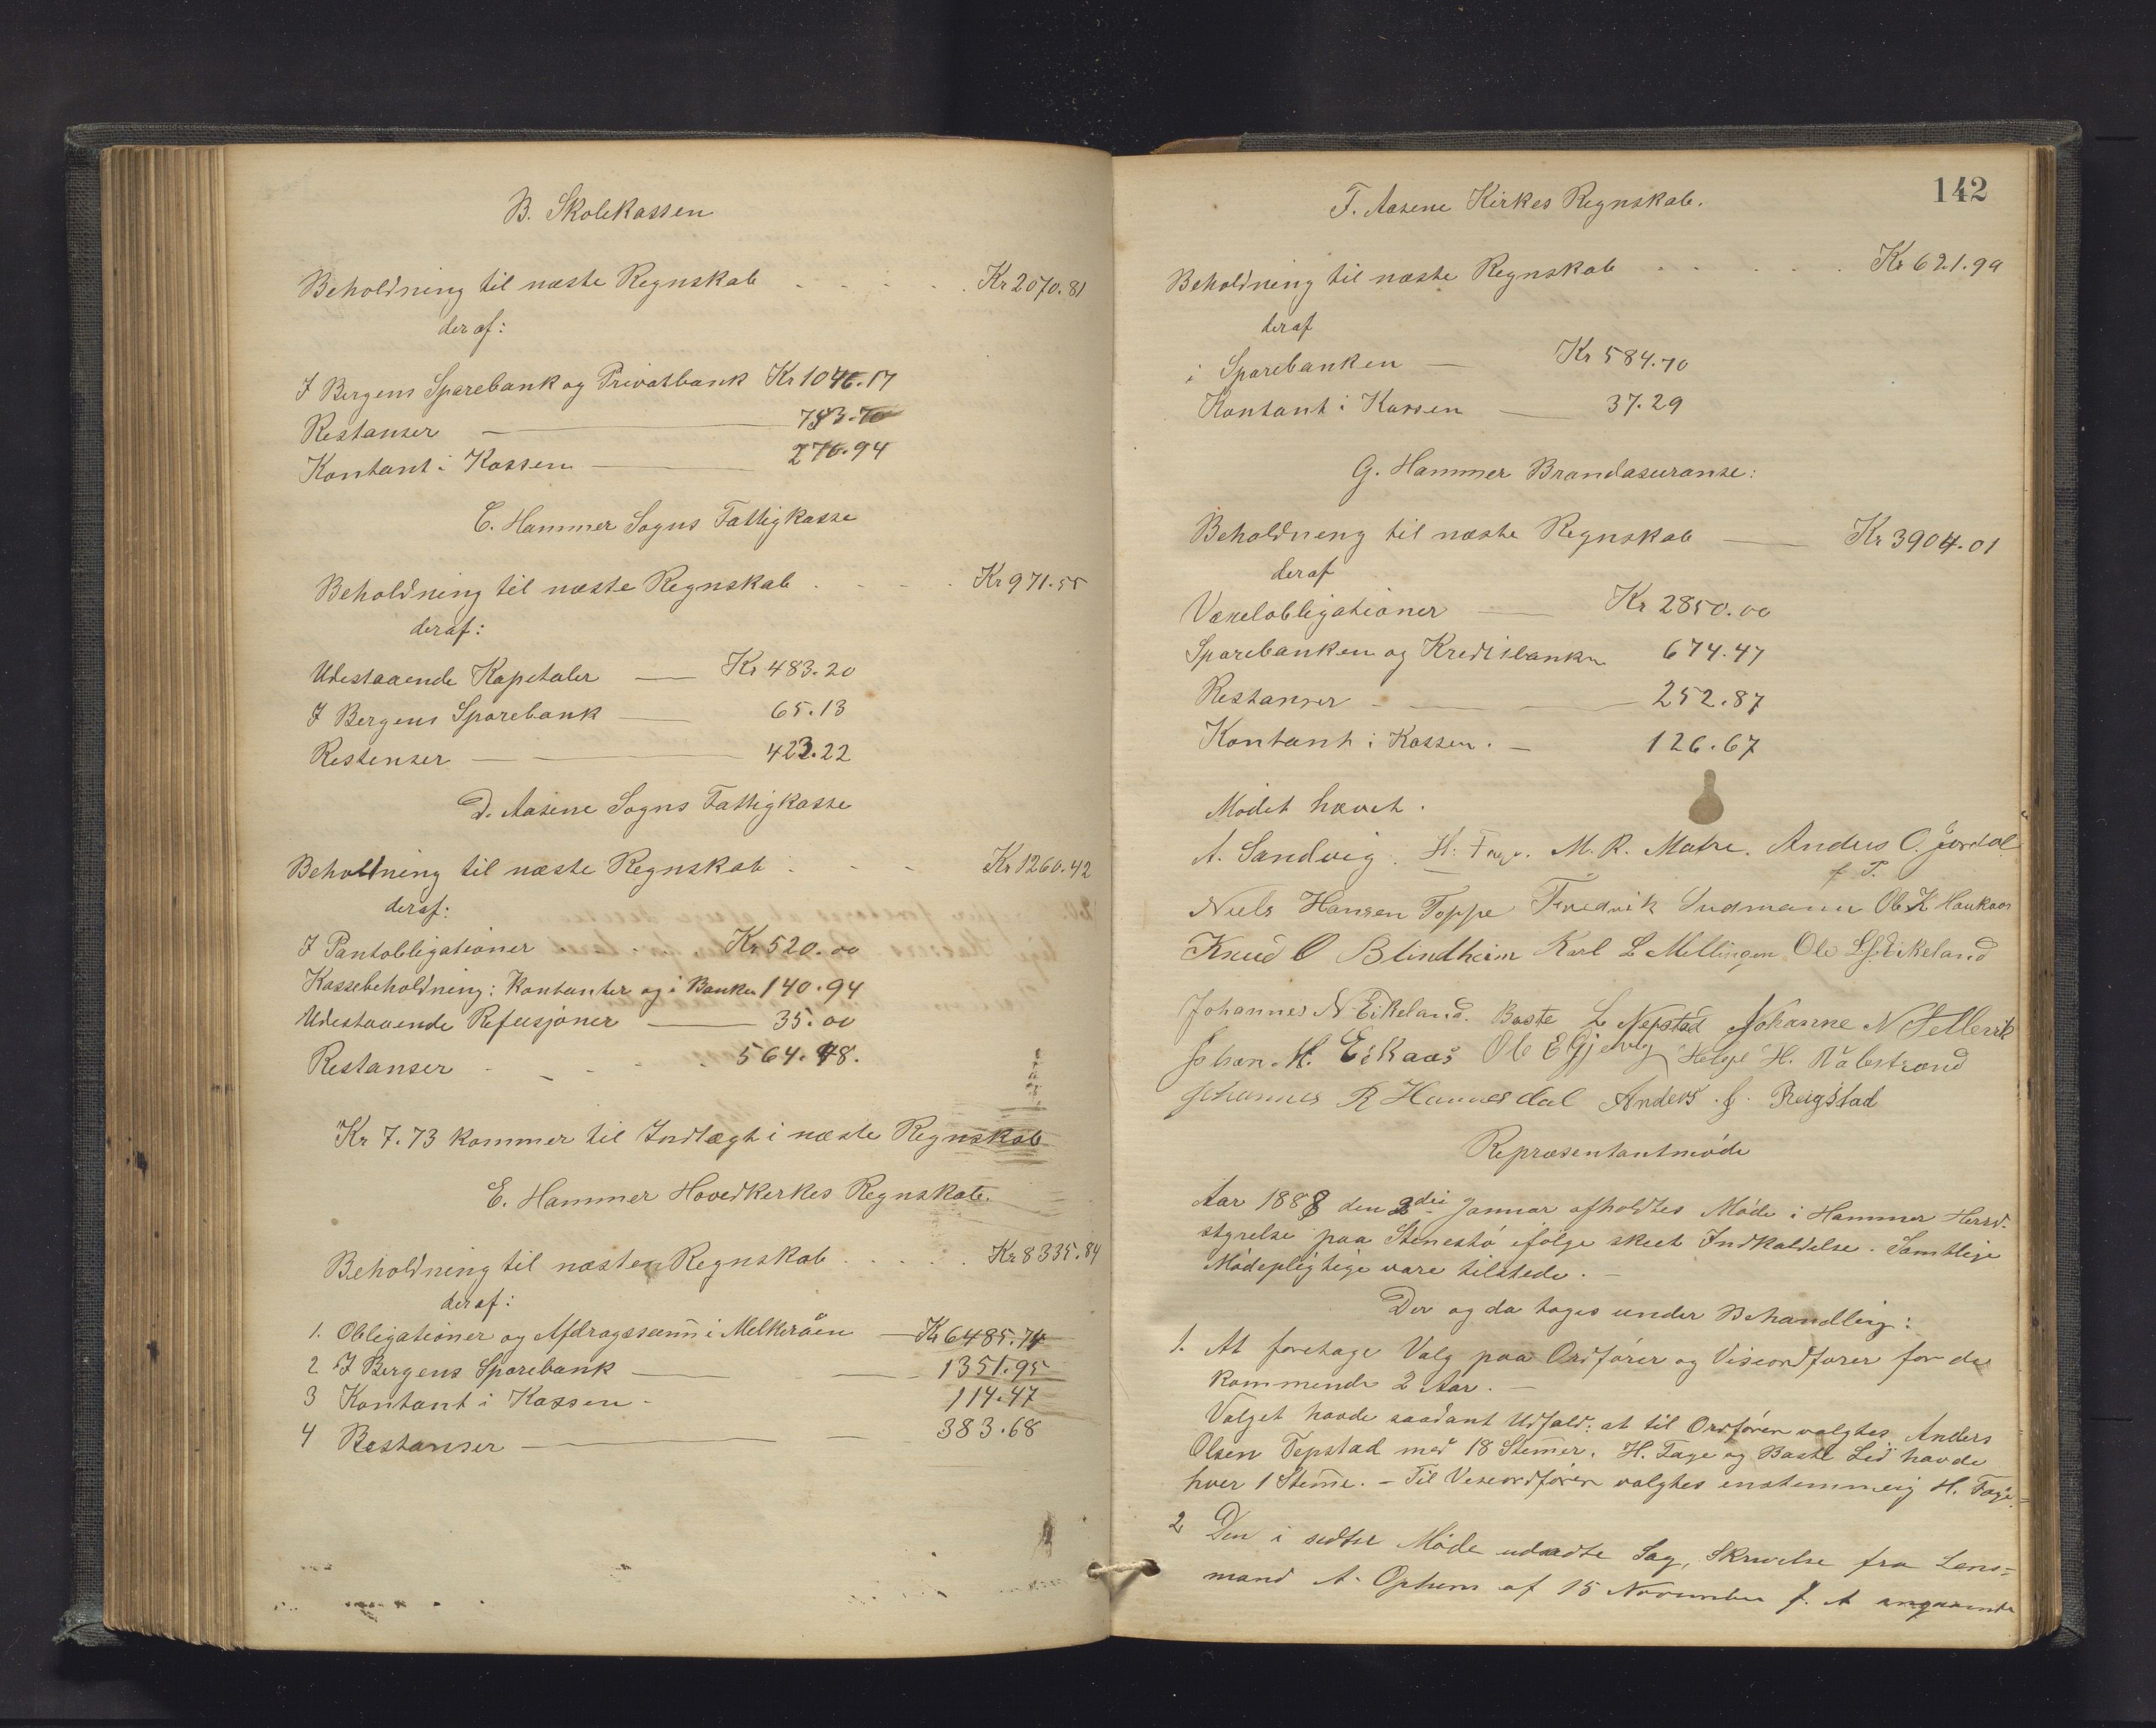 B. Skolekassen
Beholdning til næste Regnskab . . . . . Kr 2070.81
deraf:
I Bergens Sparebank og Privatbank Kr 1046.17
Restanser — 783.70
Kontant i Kassen — 276.94
C. Hammer Sogns Fattigkasse
Beholdning til næste Regnskab . . . . Kr 971.55
deraf:
Udestaaende Kapetaler — Kr 483.20
I Bergens Sparebank — 65.13
Restenser — 423.22
D. Aasene Sogns Fattigkasse
Beholdning til næste Regnskab . . . Kr 1260.42
deraf:
I Pantobligationer . . Kr 520.00
Kassebeholdning: Kontanter og i Banken 140.94
Udestaaende Refusjoner — 35.00
Restanser - - - - . 564.48.
Kr 7.73 kommer til Indtægt i næste Regnskab
E. Hammer Hovedkerkes Regnskab.
Beholdning til næste Regnskab . . . . . Kr 8335.84
deraf:
1. Obligationer og Afdragssum̅ i Melkeråen — Kr 6485.74
2 I Bergens Sparebank — 1351.95
3 Kontant i Kassen - 114.47
4 Restanser — 383.68
142
F. Aasene Kirkes Regnskab.
Beholdning til næste Regnskab . . . . . Kr 621.99
deraf
i Sparebanken — Kr 584.70
Kontant i Kassen — 37.29
G. Hammer Brandasuranse:
Beholdneng til næste Regnskab — Kr 3904.01
deraf
Vexelobligationer — Kr 2850.00
Sparebanken og Kreditbanken 674.47
Restanser - — 252.87
Kontant i Kassen. — 126.67
Mødet hævet.
A. Sandvig. H. Fage. M. R. Matre. Andres O. Jordal
f. T.
Niels Hansen Toppe Fredrik Ludmann Ole K Haukaas
Knud O Blindheim Karl L Mellingen Ole L Eikeland
Johannes N Eikeland. Baste L Nepstad Johanne N Tellevik
Johan. H. Eikaas Ole E Gjervig Helge H. Vabstrand
Johannes R Hannesdal Anders. J. Reigstad
Repræsentantmøde
Aar 1888 den 2den Januar afholdtes Møde i Hammer Herred.
styrelse paa Stenestø ifølge skeet Indkaldelse. Samtlige
Mødepligtige vare tilstede. —
Der og da toges under Behandling:
1. At foretage Valg paa Ordfører og Viseordfører for de
kommende 2 Aar. —
Valget havde saadant Udfald: at til Ordfører valgtes Anders
Olsen Tepstad med 18 Stem̅er. H. Fage og Baste Lid havde
hver 1 Stem̅e. — Til Viseordfører valgtes enstemmeig H. Fage.
2 Den i sidste Møde udsadte Sag, Skrivelse fra Lens=
mand A. Ophem af 15 November f. A angaaende